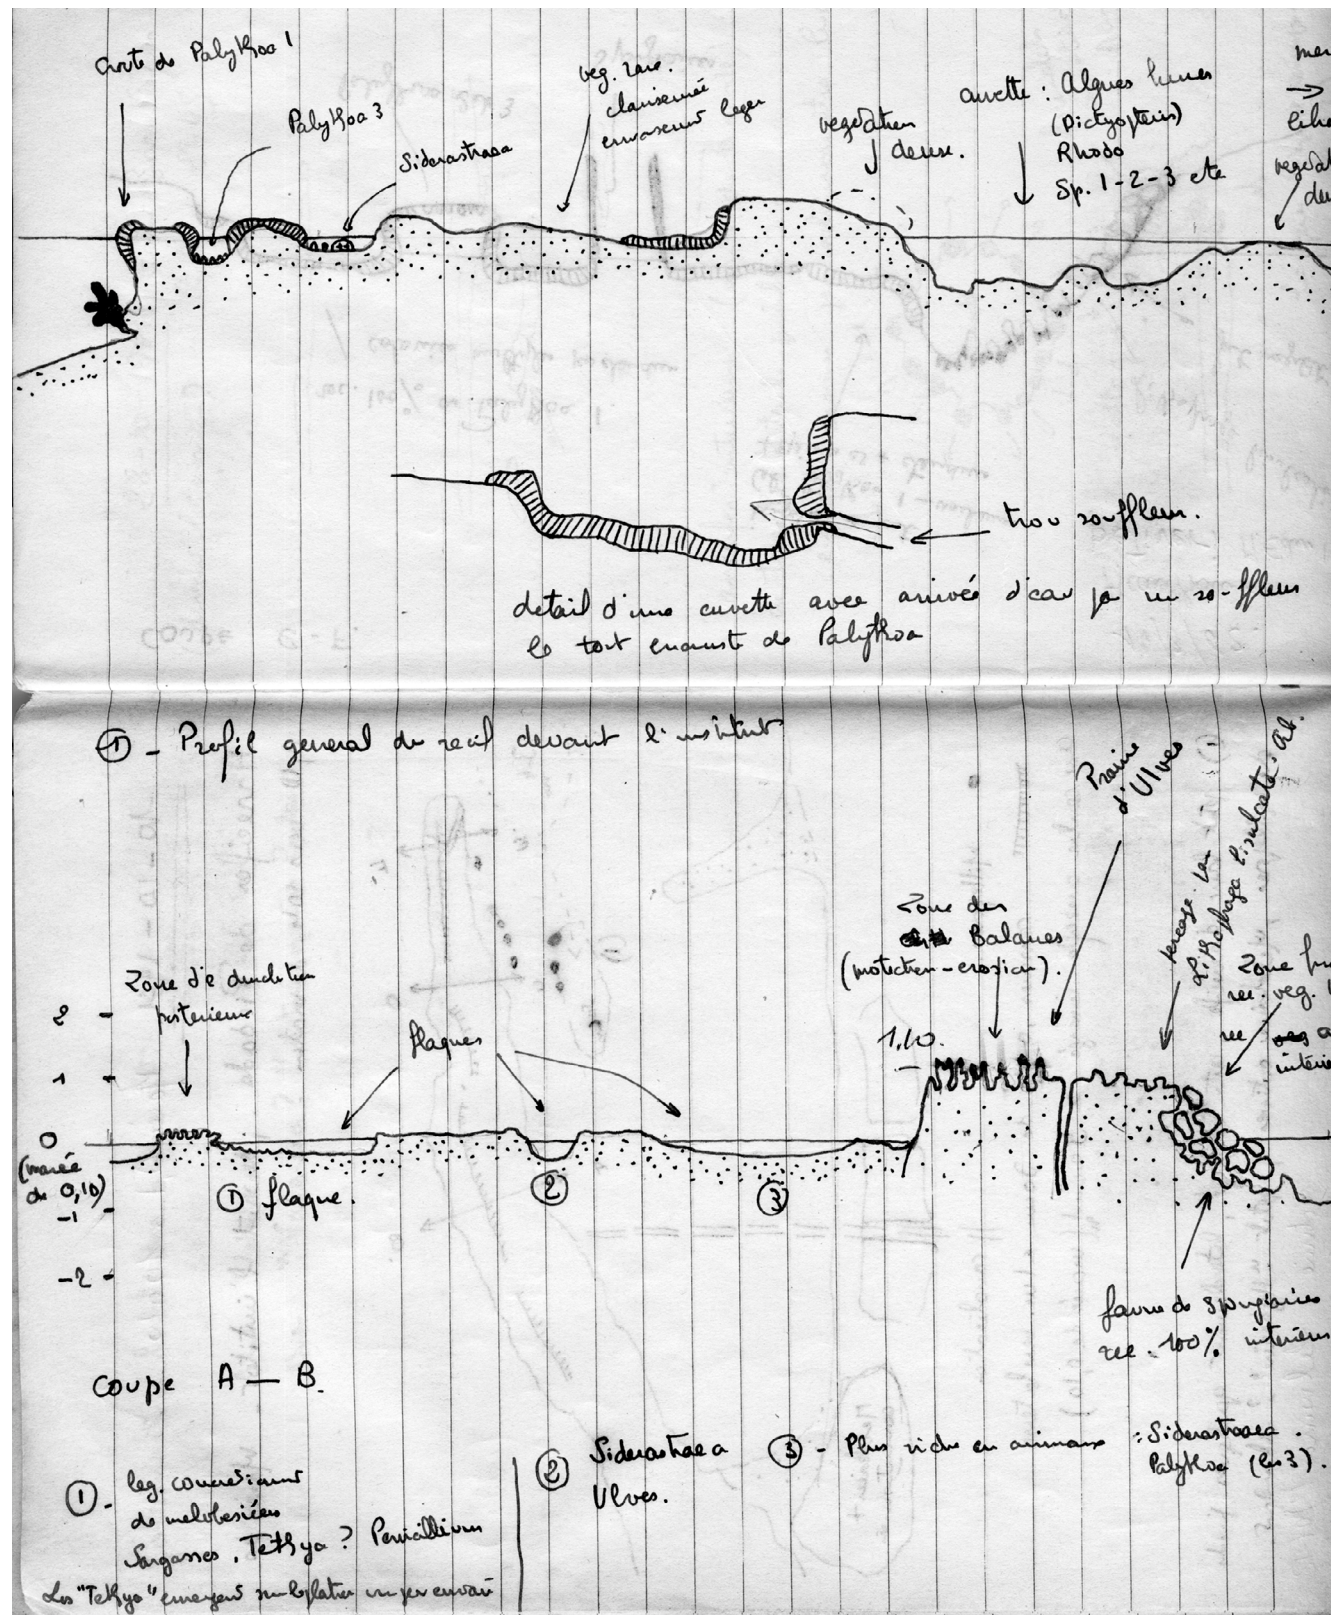 croute de Palythoa 1
Palythoa 3
Siderastraea
veg. rare.
clairsemée
envasement leger
vegetation
dense.
cuvette : Algues brunes
(Dictyopteris)
Rhodo
Sp. 1-2-3 etc
mer
→
vegetat
den
trou souffleur.
detail d'une cuvette avec arrivée d'eau par un souffleur
le tout encrouté de Palythoa
① - Profil general du recif devant l'institut
Prairie
d'Ulves
Zone des
Balanes
(protection-erosion).
Lithophaga bisulcata
Zone
rec. veg.
rec
interie
Zone d'e
posterieure
flaques
2
1
0
(marée
de 0,10)
-1
-2
1,10.
① flaque.
②
③
faune de spongiaires
rec. 100% interieur
coupe A — B.
① -
de melobesiées
Sargasses, Tethya ? Penicillium
Les "Tethya" emergent sur le platier un peu envasé
② Siderastraea
Ulves.
③ - Plus riche en animaux : Siderastraea.
Palythoa (les 3).